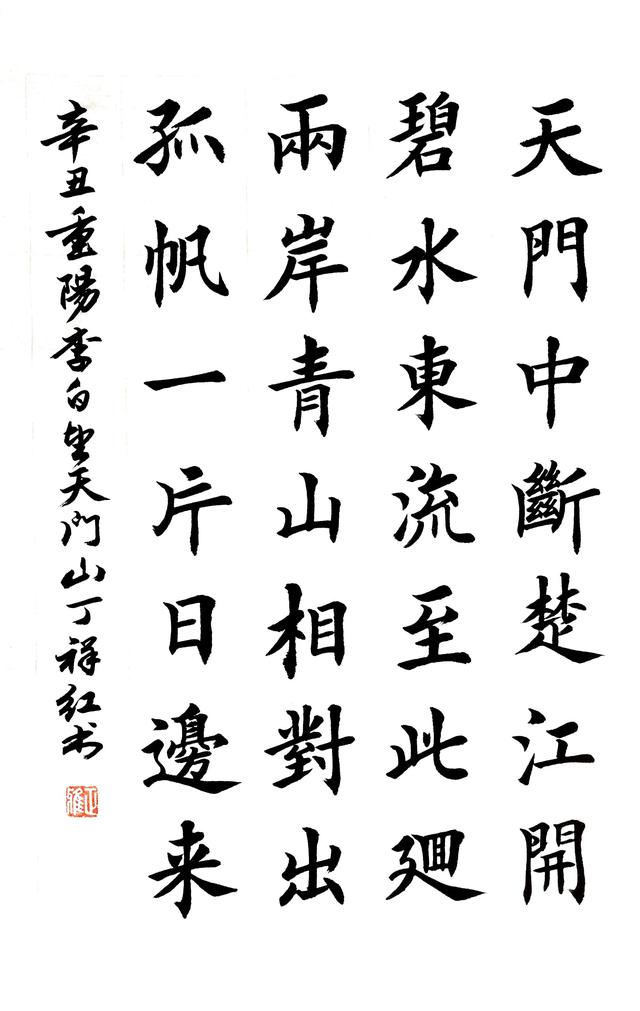 天門中斷楚江開
碧水東流至此廻
兩岸青山相對出
孤帆一片日邊来
辛丑重陽李白望天门山丁祥红书